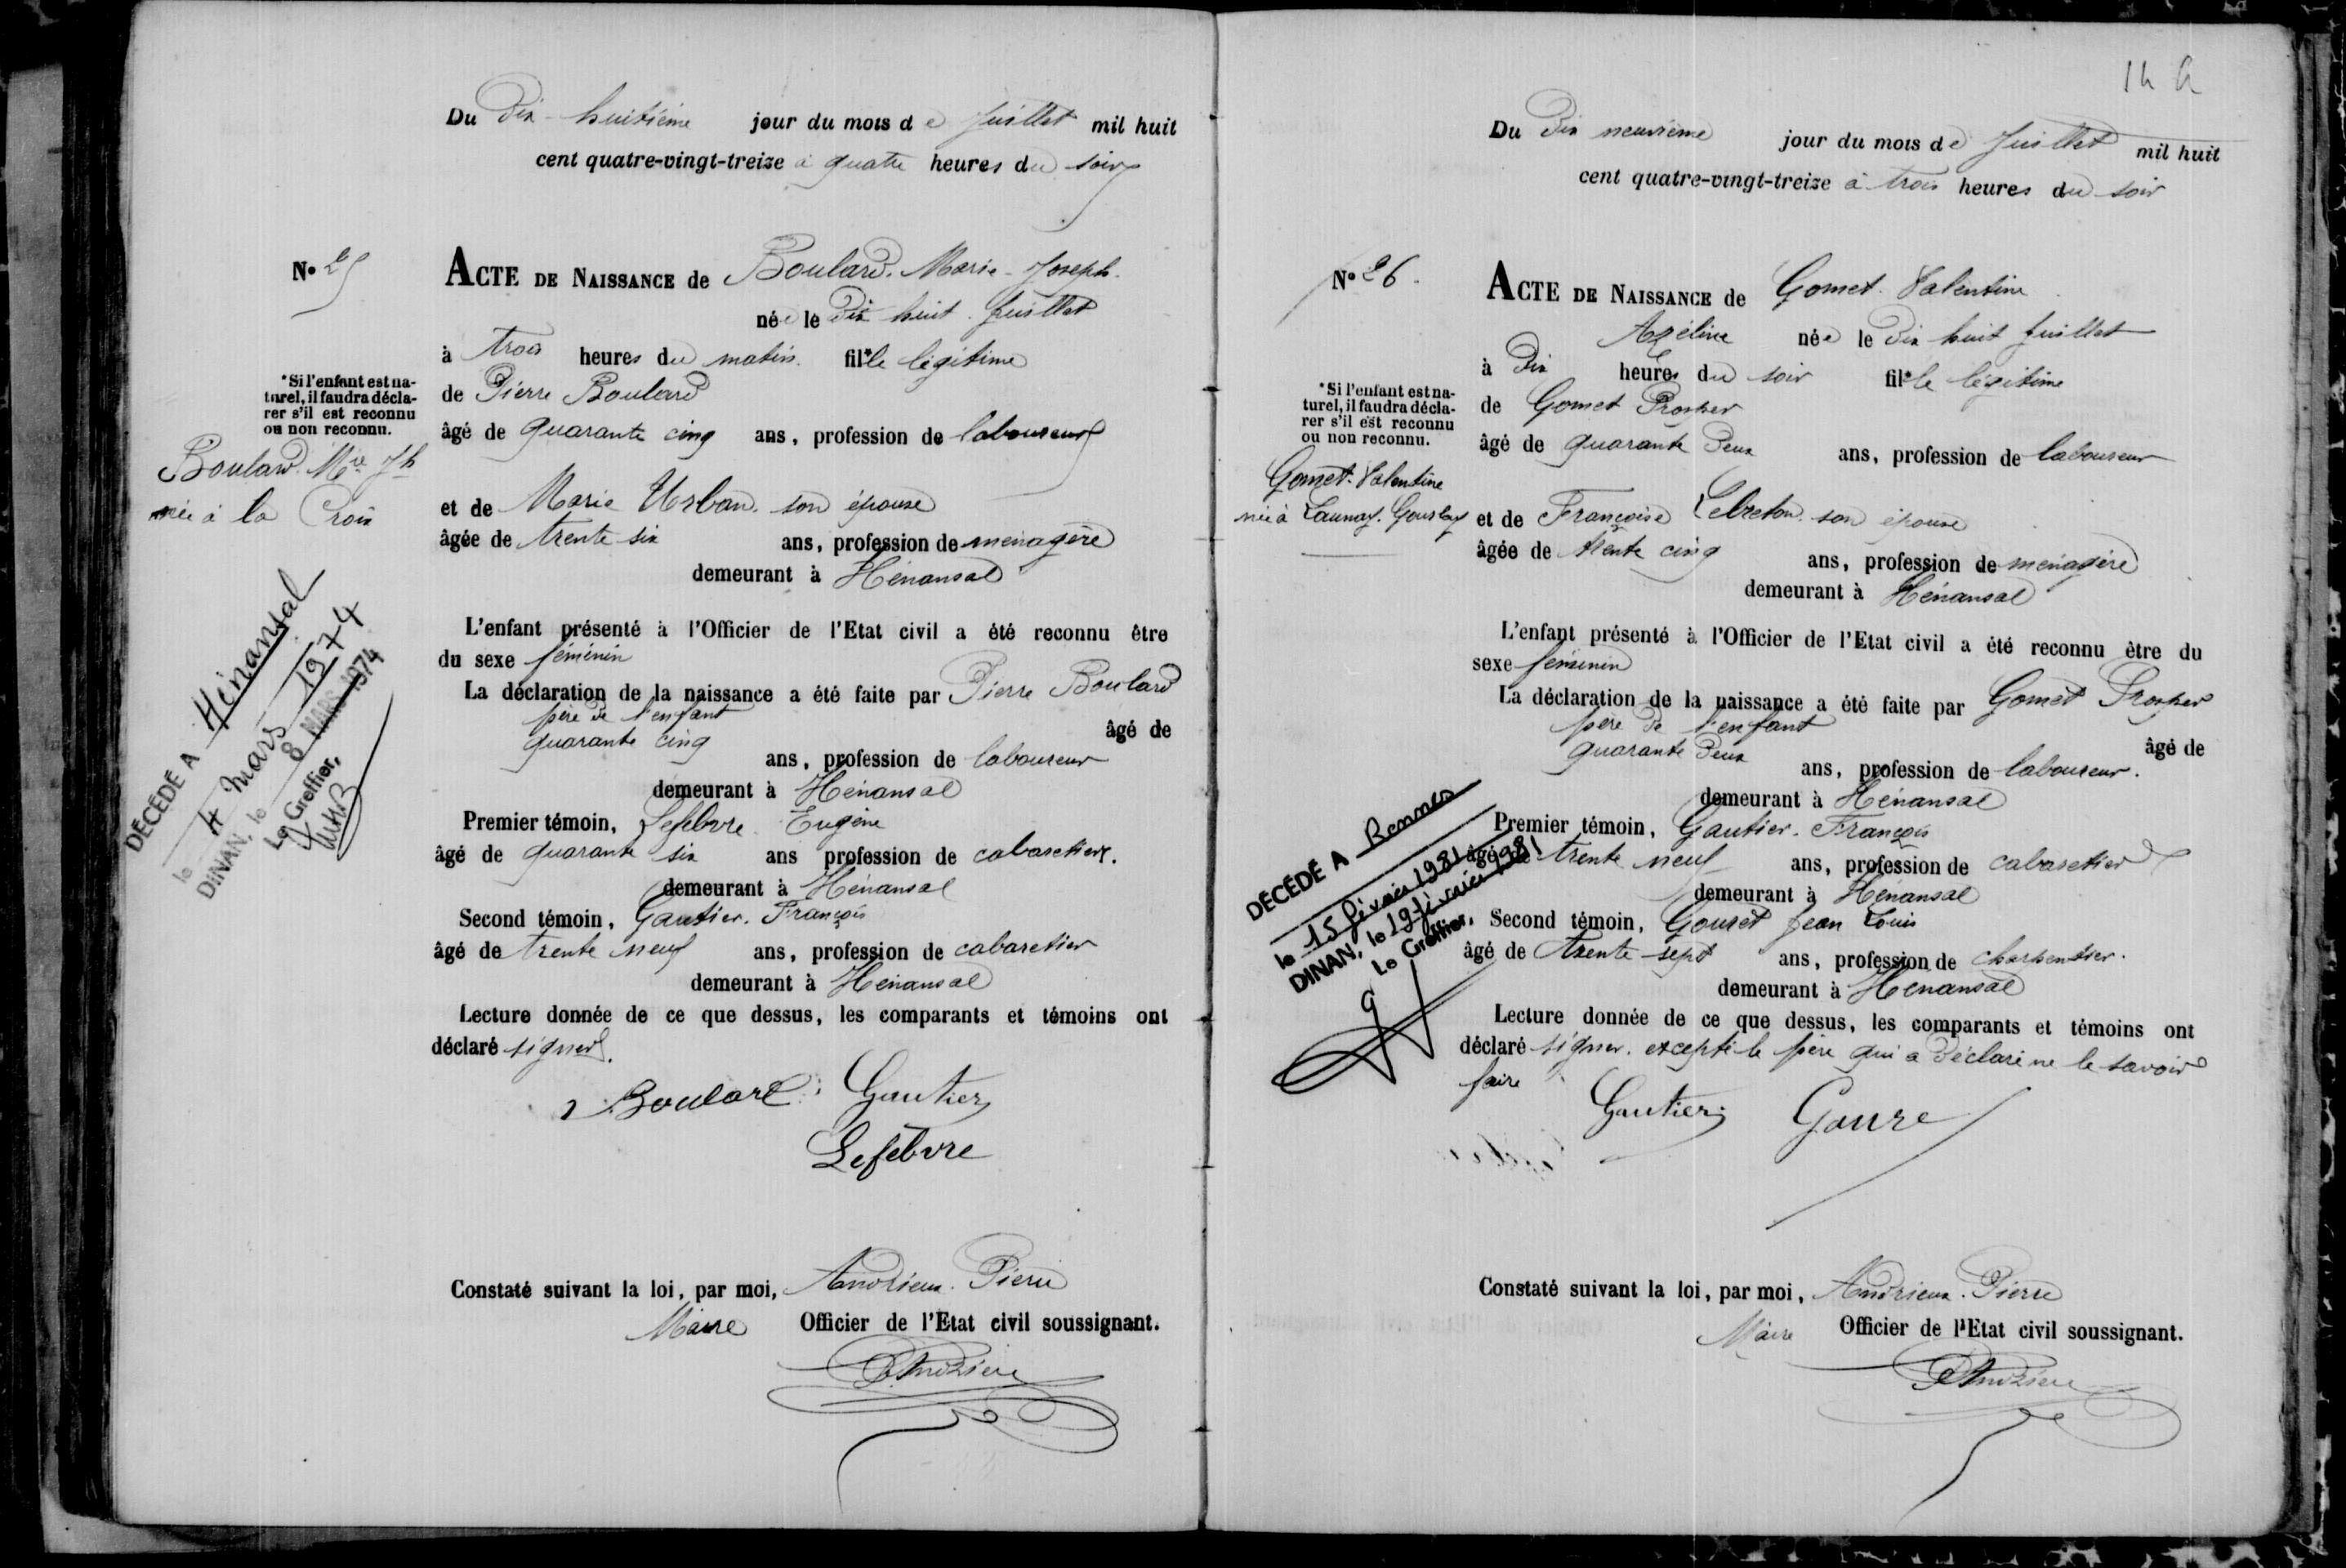 Du Dix-huitième jour du mois de Juillet mil huit
cent quatre-vingt-treize à quatre heures du soir
N° 25
ACTE DE NAISSANCE de Boulard Marie-Joseph
née le Dix huit Juillet
à trois heures du matin fil*le légitime
*Si l'enfant est na-
turel, il faudra décla-
rer s'il est reconnu
ou non reconnu.
de Pierre Boulard
âgé de quarante cinq ans, profession de laboureur
Boulard Mie Jh
née à la Croix
et de Marie Urban son épouse
âgée de trente six ans, profession de ménagère
demeurant à Hénansal
L'enfant présenté à l'Officier de l'Etat civil a été reconnu être
du sexe féminin
La déclaration de la naissance a été faite par Pierre Boulard
père de l'enfant âgé de
quarante cinq ans, profession de laboureur
demeurant à Hénansal
DÉCÉDÉ A Hénansal
le 4 Mars 1974
DINAN, le 8 MARS 1974
Le Greffier,
Premier témoin, Lefebvre Eugène
âgé de quarante six ans profession de cabaretier.
demeurant à Hénansal
Second témoin, Gautier François
âgé de trente neuf ans, profession de cabaretier
demeurant à Hénansal
Lecture donnée de ce que dessus, les comparants et témoins ont
déclaré signer.
Boulard Gautier
Lefebvre
Constaté suivant la loi, par moi, Andrieux Pierre
Maire Officier de l'Etat civil soussignant.
PAndrieux
14
Du Dix neuvième jour du mois de Juillet mil huit
cent quatre-vingt-treize à trois heures du soir
N° 26.
ACTE DE NAISSANCE de Gomet Valentine
Azéline née le dix huit Juillet
à Dix heures du soir fil*le légitime
*Si l'enfant est na-
turel, il faudra décla-
rer s'il est reconnu
ou non reconnu.
de Gomet Prosper
âgé de quarante Deux ans, profession de laboureur
Gomet Valentine
née à Launay Gourlay
et de Françoise Lebreton son épouse
âgée de trente cinq ans, profession de ménagère
demeurant à Hénansal
L'enfant présenté à l'Officier de l'Etat civil a été reconnu être du
sexe féminin
La déclaration de la naissance a été faite par Gomet Prosper
père de l'enfant âgé de
quarante Deux ans, profession de laboureur.
demeurant à Hénansal
DÉCÉDÉ A Rennes
le 15 février 1981
DINAN, le 19 février 1981
Le Greffier,
Premier témoin, Gautier François
âgé de trente neuf ans, profession de cabaretier
demeurant à Hénansal
Second témoin, Gouret Jean Louis
âgé de trente-sept ans, profession de charpentier.
demeurant à Hénansal
Lecture donnée de ce que dessus, les comparants et témoins ont
déclaré signer, excepté le père qui a déclaré ne le savoir
faire
Gautier Goure
Constaté suivant la loi, par moi, Andrieux Pierre
Maire Officier de l'Etat civil soussignant.
PAndrieux